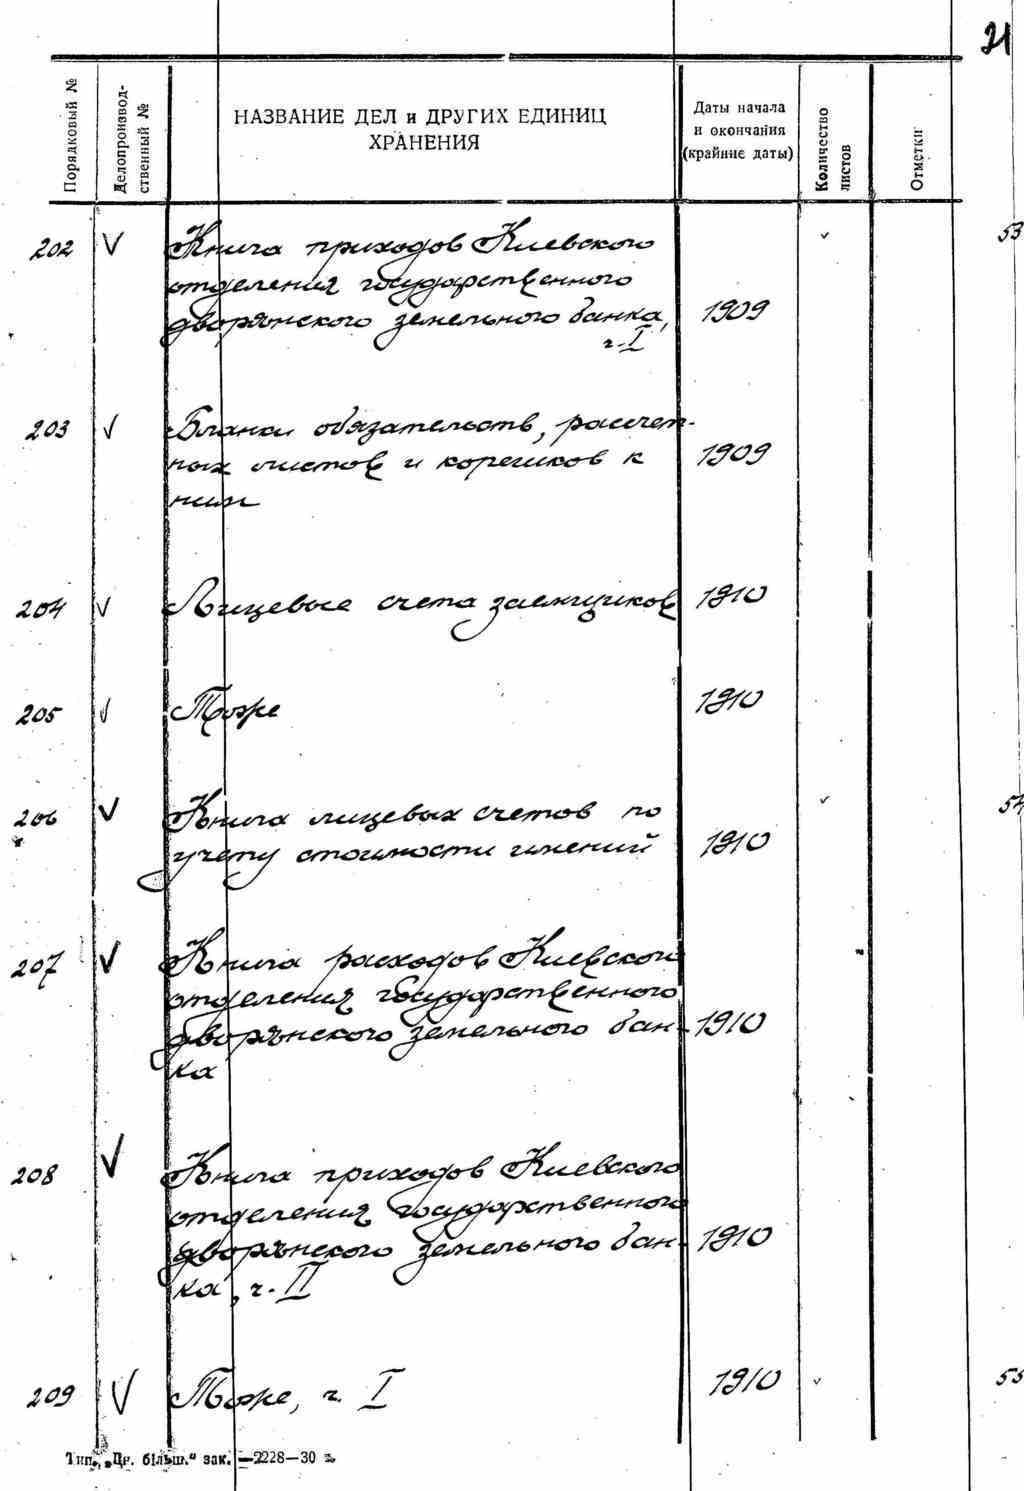 21
Порядковый №
Делопроизвод-
ственный №
НАЗВАНИЕ ДЕЛ и ДРУГИХ ЕДИНИЦ
ХРАНЕНИЯ
Даты начала
и окончания
(крайние даты)
Количество
листов
Отметки
202 V Книга приходов Киевского 53
отделения государственного
дворянского земельного банка, 1909
ч. I
203 V Бланки обязательств, расчет-
ных листов и корешков к 1909
ним
204 V Лицевые счета заемщиков 1910
205 V Тоже 1910
206 V Книга лицевых счетов по 54
учету стоимости имений 1910
207 V Книга расходов Киевского
отделения государственного
дворянского земельного бан- 1910
ка
208 V Книга приходов Киевского
отделения государственного
дворянского земельного бан- 1910
ка, ч. II
209 V Тоже, ч. I 1910 55
Тип. „Др. більш." зак. —2228—30